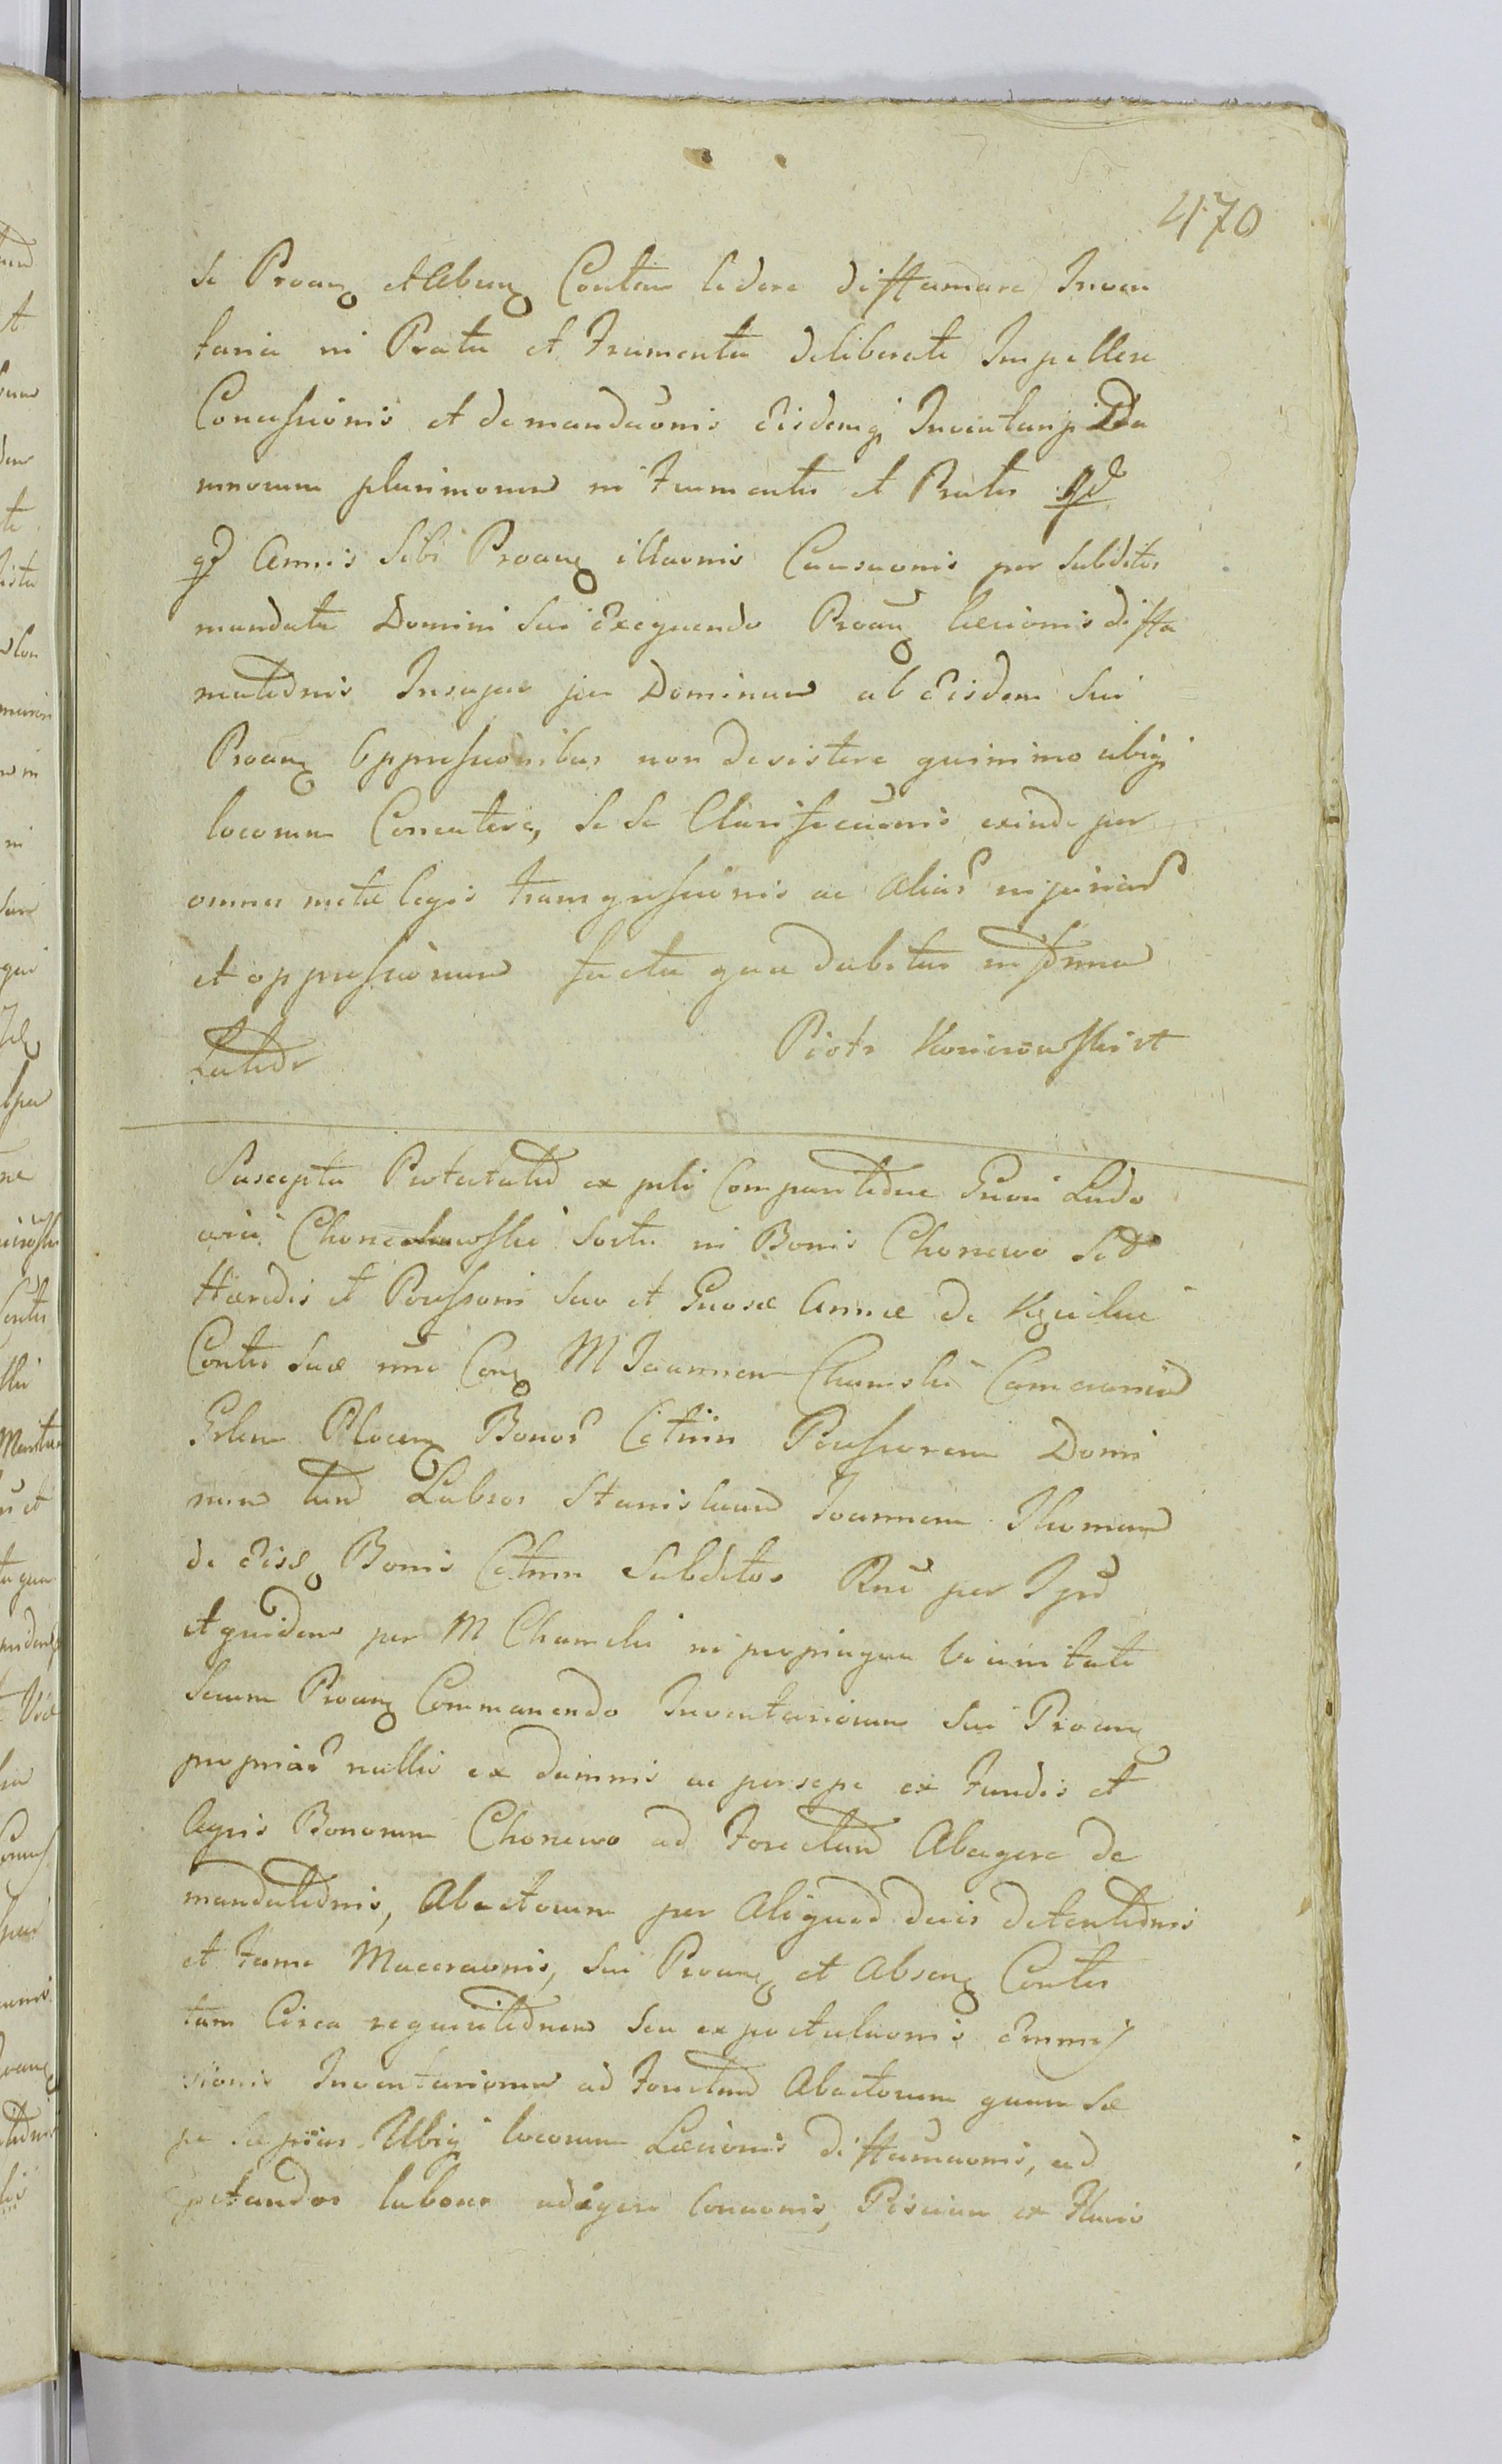 470
se Proan et Absen Contem ledere diffamare Inven
taria in Prata et Frumenta deliberate Impellere
Concussionis et demandaonis Eisdemq Inventarys Da
mnorum plurimorum in Frumentis et Pratis qd
qd Annis Sibi Proan illaonis Causaonis per Subditos
mandata Domini Sui Exequendo Proan Laesionis diffa
mationis Insuper per Dominum ab Eisdem Sui
Proan Oppressionibus non desistere quinimo ubiq
locorum Concutere, se se Clarificaonis exinde per
omnes metae legis transgressionis ac Alias injurias
et oppressionum facta qua dabitur in Termo
Latius Piotr
Suscepta Protestatio ex pssti Comparitione Gnosi Ludo
vici Sortis in Bonis Chonewo Sed
Haeredis et Possessoris suo et Gnosae Annae de
Contis suae nne Con M Joannem Chamski Camerarium
Grlem Plocen Bonor Possessorem Domi
num tum Labsos Stanislaum Joannem Thomam
de Eisd Bonis Subditos Rne per Ipsd
et quidem per M Chamski in propinqua Vicinitate
Secum Proan Commanendo Inventariorum Sui Proan
proprior nullis ex damnis ac persepe ex Fundis et
Agris Bonorum Chonewo ad Forctum Abagere de
mandationis, Abactorum per Aliquod dies detentionis
et Fame Maceraonis, Sui Proan et Absen Contis
tam Circa requisitionem seu expostulaonis Emmis
sionis Inventariorum ad Forctum Abactorum quam Sae
pe saepius Ubiq locorum Laesionis diffamaonis, ad
petandos labores adigere Conaonis, Piscium ex Fluvio